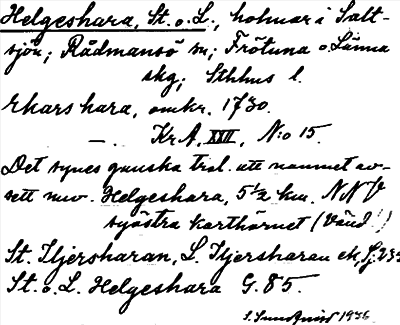 Helgeshara, St. o. L., holmar i Salt-
sjön; Rådmansö sn; Frötuna o Länna
skg; Sthlms l.
Ekarshara, omkr. 1730.
—. Kr A, XXII, N:o 15.
Det synes ganska trol. att namnet av-
sett nuv. Helgeshara, 5½ km. NNV
sydöstra karthörnet (Vänd!)
St. Iljersharan, L. Iljersharan ek.
St. o. L. Helgeshara G. 85.
S. Sundqvist 1936